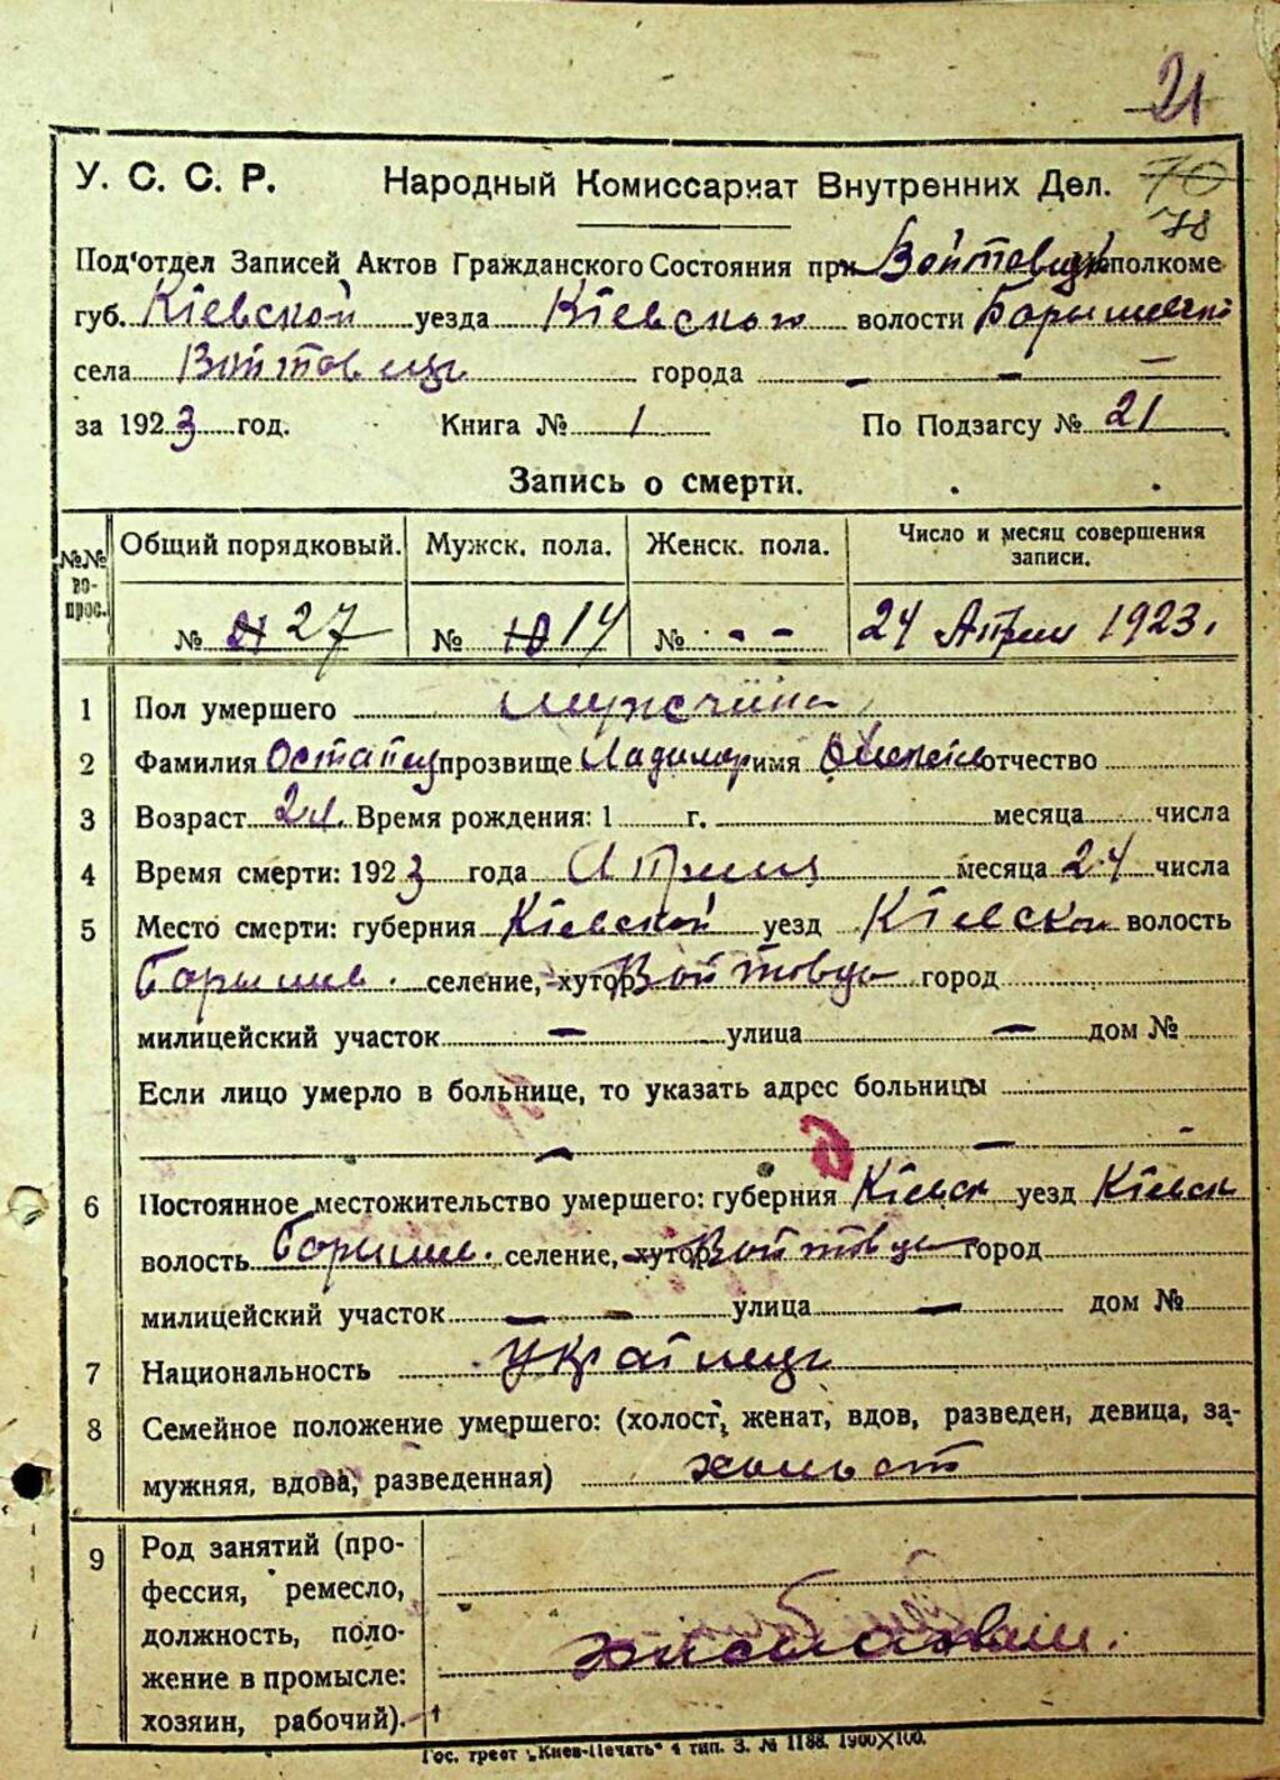 21
У. С. С. Р. Народный Комиссариат Внутренних Дел. 70
78
Под'отдел Записей Актов Гражданского Состояния при Войтовец исполкоме
губ. Кіевской уезда Кіевского волости Барышевской
села Войтовцы города — — —
за 1923 год. Книга № 1 По Подзагсу № 21
Запись о смерти.
№№ вопрос. Общий порядковый. Мужск. пола. Женск. пола. Число и месяц совершения записи.
№ 21 27 № 10 14 № - - 24 Апреля 1923.
1 Пол умершего мужчина
2 Фамилия Остапец прозвище имя отчество
3 Возраст Время рождения: 1 г. месяца числа
4 Время смерти: 1923 года Апреля месяца 24 числа
5 Место смерти: губерния Кіевской уезд Кіевском волость
Барышев. селение, хутор Войтовцы город
милицейский участок — улица — дом №
Если лицо умерло в больнице, то указать адрес больницы
— — -
6 Постоянное местожительство умершего: губерния Кіевск уезд Кіевск
волость Барышев. селение, хутор Войтовцы город
милицейский участок — — улица — дом №
7 Национальность Украінец
8 Семейное положение умершего: (холост, женат, вдов, разведен, девица, за-
мужняя, вдова, разведенная) холост
9 Род занятий (про-
фессия, ремесло,
должность, поло-
жение в промысле:
хозяин, рабочий).
Гос. трест „Киев-Печать" 4 тип. З. № 1188. 1900×100.